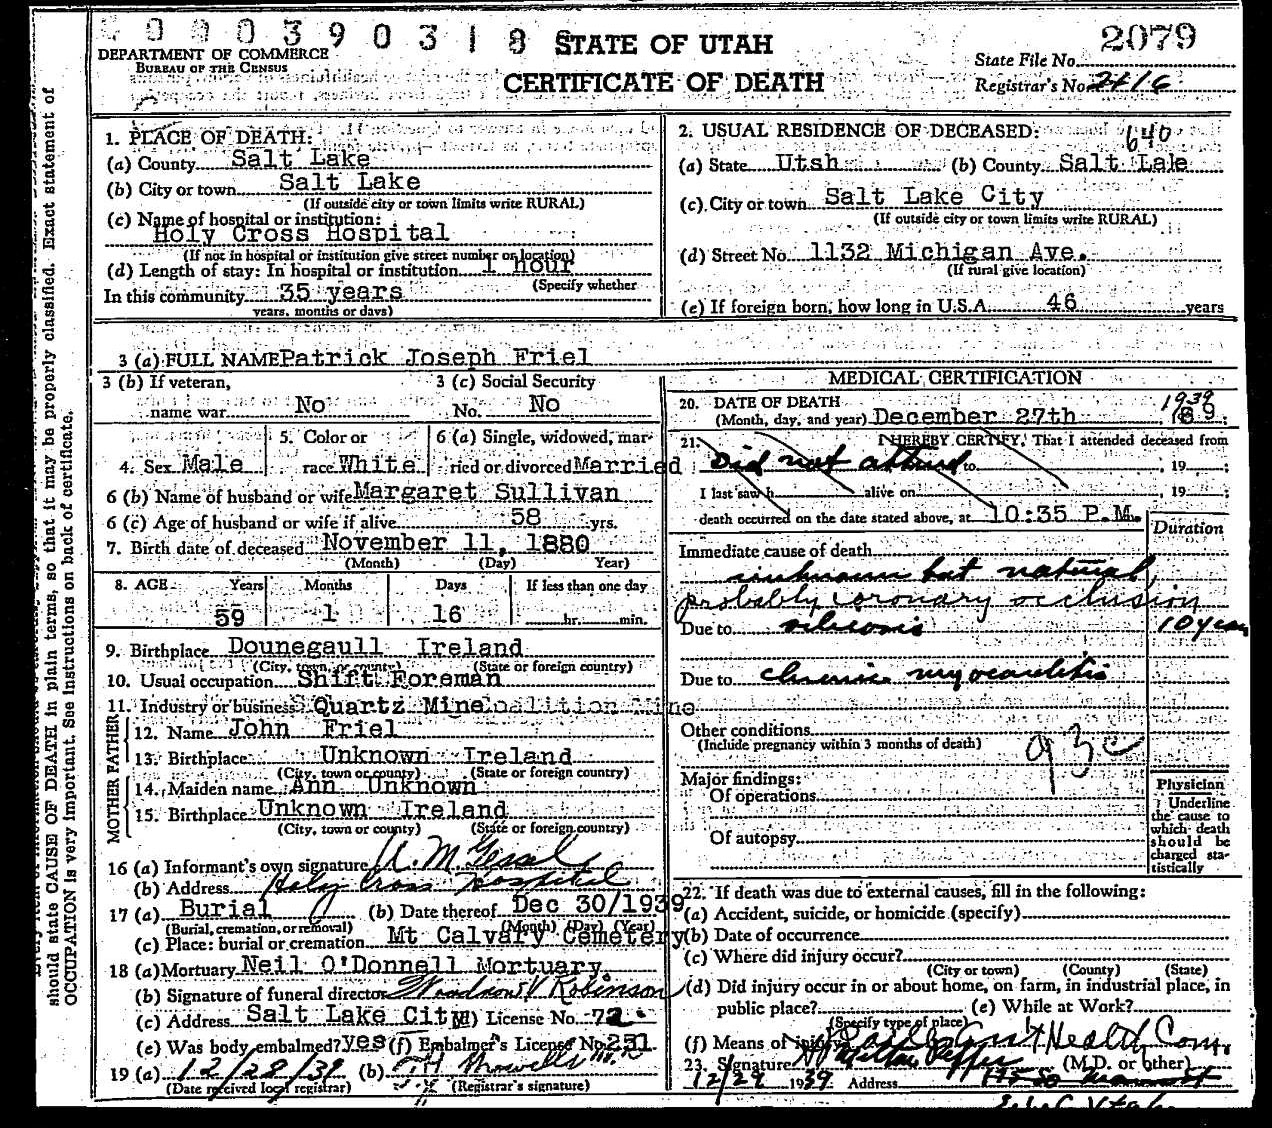 0 0 0 3 9 0 3 1 8 8
STATE OF UTAH
2079
DEPARTMENT OF COMMERCE
BUREAU OF THE CENSUS
State File No.
CERTIFICATE OF DEATH
Registrar's No. 2416
should state CAUSE OF DEATH in plain terms, so that it may be properly classified. Exact statement of
OCCUPATION is very important. See Instructions on back of certificate.
1. PLACE OF DEATH:
(a) County Salt Lake
(b) City or town Salt Lake
(If outside city or town limits write RURAL)
(c) Name of hospital or institution:
Holy Cross Hospital
(If not in hospital or institution give street number or location)
(d) Length of stay: In hospital or institution 1 hour
(Specify whether
In this community 35 years
years, months or days)
2. USUAL RESIDENCE OF DECEASED:
640
(a) State Utsh (b) County Salt Lale
(c) City or town Salt Lake City
(If outside city or town limits write RURAL)
(d) Street No. 1132 Michigan Ave.
(If rural give location)
(e) If foreign born, how long in U.S.A. 46 years
3 (a) FULL NAME Patrick Joseph Friel
3 (b) If veteran,
name war No
3 (c) Social Security
No. No
4. Sex Male
5. Color or
race White
6 (a) Single, widowed, mar-
ried or divorced Married
6 (b) Name of husband or wife Margaret Sullivan
6 (c) Age of husband or wife if alive 58 yrs.
7. Birth date of deceased November 11, 1880
(Month) (Day) Year)
8. AGE Years Months Days If less than one day
59 1 16 hr. min.
9. Birthplace Dounegaull Ireland
(City, town, or county) (State or foreign country)
10. Usual occupation Shift Foreman
11. Industry or business Quartz Mine
MOTHER FATHER
12. Name John Friel
13. Birthplace Unknown Ireland
(City, town or county) (State or foreign country)
14. Maiden name Ann Unknown
15. Birthplace Unknown Ireland
(City, town or county) (State or foreign country)
16 (a) Informant's own signature
(b) Address Holy Cross Hospital
17 (a) Burial (b) Date thereof Dec 30/1939
(Burial, cremation, or removal) (Month) (Day) (Year)
(c) Place: burial or cremation Mt Calvary Cemetery
18 (a) Mortuary Neil O'Donnell Mortuary
(b) Signature of funeral director Woodrow V Robinson
(c) Address Salt Lake City (d) License No. 72
(e) Was body embalmed? yes (f) Embalmer's License No. 251
19 (a) 12/28/39 (b)
(Date received local registrar) (Registrar's signature)
MEDICAL CERTIFICATION
20. DATE OF DEATH 1939
(Month, day, and year) December 27th
21. I HEREBY CERTIFY, That I attended deceased from
Did not attend to , 19 ;
I last saw h alive on , 19 ;
death occurred on the date stated above, at 10:35 P.M.
Duration
Immediate cause of death
unknown but natural,
probably coronary occlusion
Due to silicosis 10 years
Due to chronic myocarditis
Other conditions
(Include pregnancy within 3 months of death)
93c
Major findings:
Of operations
Of autopsy
Physician
Underline
the cause to
which death
should be
charged sta-
tistically
22. If death was due to external causes, fill in the following:
(a) Accident, suicide, or homicide (specify)
(b) Date of occurrence
(c) Where did injury occur?
(City or town) (County) (State)
(d) Did injury occur in or about home, on farm, in industrial place, in
public place? (e) While at Work?
(Specify type of place)
(f) Means of injury Health Com.
23. Signature (M.D. or other)
12/29 1939 Address